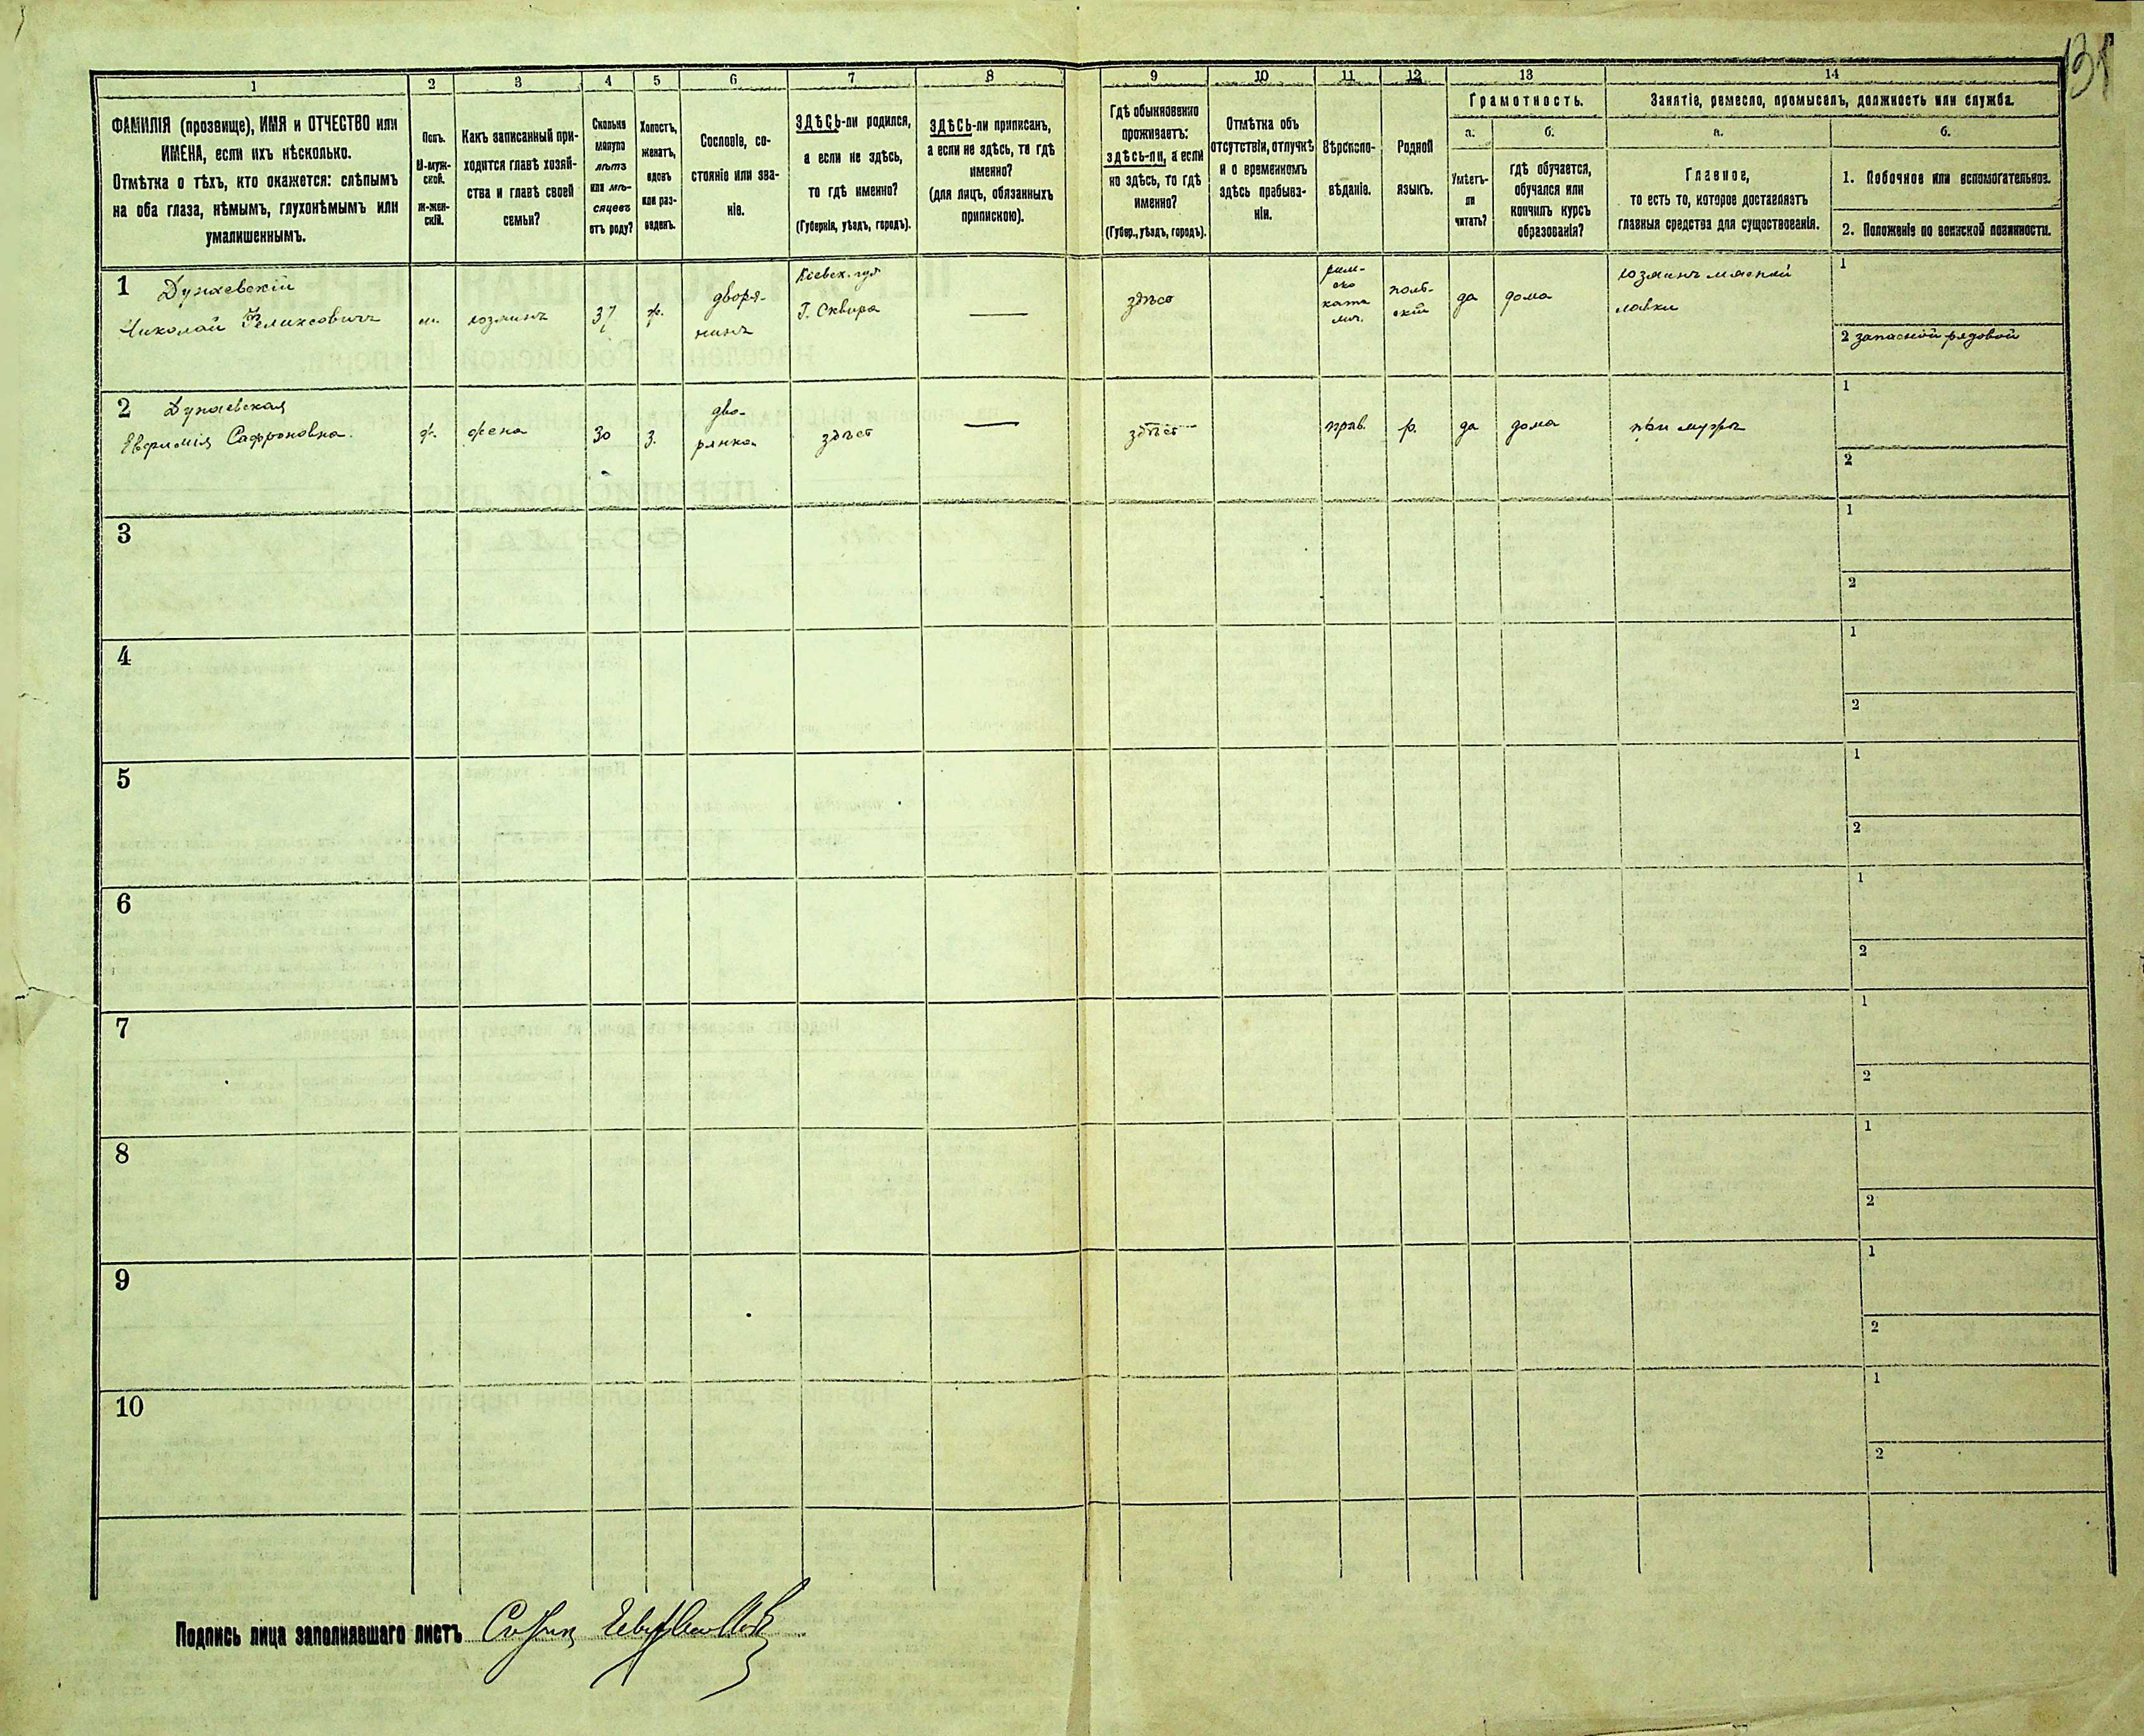 131
1 2 3 4 5 6 7 8 9 10 11 12 13 14
ФАМИЛІЯ (прозвище), ИМЯ и ОТЧЕСТВО или
ИМЕНА, если ихъ нѣсколько.
Отмѣтка о тѣхъ, кто окажется: слѣпымъ
на оба глаза, нѣмымъ, глухонѣмымъ или
умалишеннымъ.
Полъ.
М-муж-
ской.
Ж-жен-
скій.
Какъ записанный при-
ходится главѣ хозяй-
ства и главѣ своей
семьи?
Сколько
минуло
лѣтъ
или мѣ-
сяцевъ
отъ роду?
Холостъ,
женатъ,
вдовъ
или раз-
веденъ.
Сословіе, со-
стояніе или зва-
ніе.
ЗДѢСЬ-ли родился,
а если не здѣсь,
то гдѣ именно?
(Губернія, уѣздъ, городъ).
ЗДѢСЬ-ли приписанъ,
а если не здѣсь, то гдѣ
именно?
(для лицъ, обязанныхъ
припискою).
Гдѣ обыкновенно
проживаетъ:
здѣсь-ли, а если
не здѣсь, то гдѣ
именно?
(Губер., уѣздъ, городъ).
Отмѣтка объ
отсутствіи, отлучкѣ
и о временномъ
здѣсь пребыва-
ніи.
Вѣроиспо-
вѣданіе.
Родной
языкъ.
Грамотность.
а.
Умѣетъ-
ли
читать?
б.
гдѣ обучается,
обучался или
кончилъ курсъ
образованія?
Занятіе, ремесло, промыселъ, должность или служба.
а.
Главное,
то есть то, которое доставляетъ
главныя средства для существованія.
б.
1. Побочное или вспомогательное.
2. Положеніе по воинской повинности.
1 Дунаевскій
Николай Феликсовичъ
м.
хозяинъ
37
ж.
дворя-
нинъ
Кіевск. губ
Г. Сквира
—
здѣсь
рим-
ско
като
лич.
поль-
скій
да
дома
хозяинъ мясной
лавки
1
2 запасной рядовой
2 Дунаевская
Евфимія Сафроновна.
ж.
жена
30
з.
дво-
рянка
здѣсь
—
здѣсь
прав.
р.
да
дома
при мужѣ
1
2
3
1
2
4
1
2
5
1
2
6
1
2
7
1
2
8
1
2
9
1
2
10
1
2
Подпись лица заполнявшаго листъ